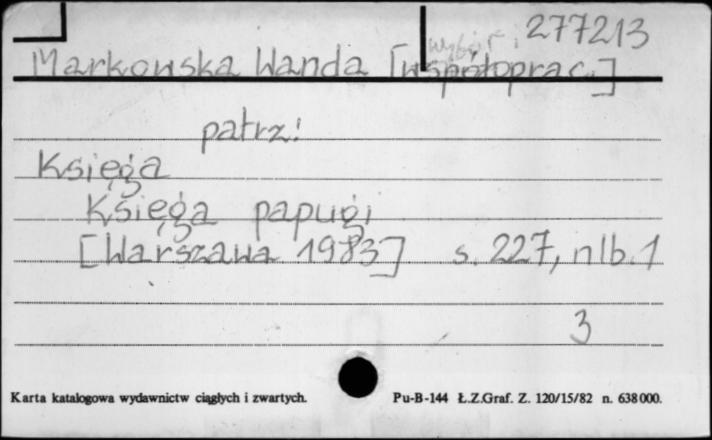 wybór i 277213
Markowska Wanda [współoprac.]
patrz:
Księga
Księga papugi
[Warszawa 1983] s. 227, nlb. 1
3
Karta katalogowa wydawnictw ciągłych i zwartych. Pu-B-144 Ł.Z.Graf. Z. 120/15/82 n. 638000.